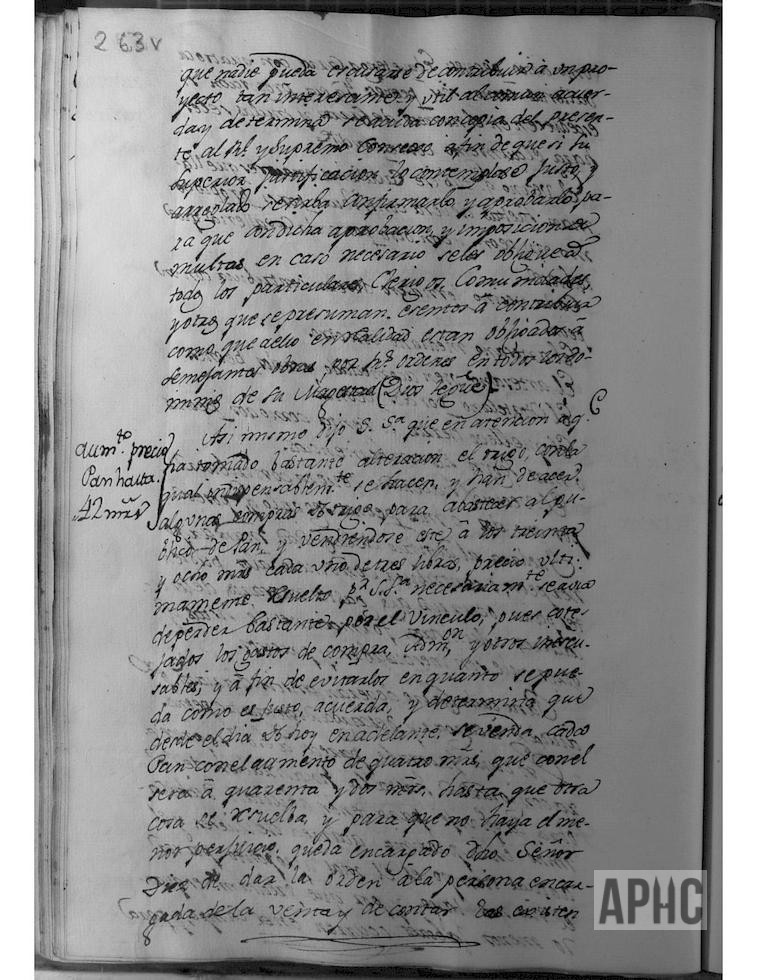 263v
que nadie pueda escusarse de contribuir à un pro-
yecto tan interesante, y util al comun acuer-
da, y determina se acuda con copia del presen-
te al Rl. y Supremo Consejo, a fin de que si su
Superior justificacion lo contemplase justo, y
arreglado se sirba confirmarlo, y aprobarlo, pa-
ra que con dicha aprobacion, y imposicion de
multas en caso necesario se les obligue à
todos los particulares, Clerigos, Comunidades,
y otros que se presuman esentos à contribuir
como que a ello en realidad estan obligados à
semejantes obras por Rs. ordenes en todos los do-
minios de su Magestad (Dios le gue.)
Asi mismo dijo S. Sa. que en atencion a q.e
ha tomado bastante alteracion el trigo, con la
qual indispensablemte. se hacen, y han de acer
algunas compras de trigo para abastecer al pu-
blico de Pan, y vendiendose este à los treinta
y ocho mrs. cada uno de tres libras, precio ulti-
mamente resuelto pr. S.Sa. necesariamte. se avia
de perder bastante por el Vinculo, pues cote-
jados los gastos de compra, Admon., y otros inescu-
sables, y à fin de evitarlos en quanto se pue-
da como es justo, acuerda, y determina que
desde el dia de hoy en adelante, se venda cada
Pan con el aumento de quatro mrs, que con el
sera à quarenta y dos mrs. hasta que otra
cosa se resuelba, y para que no haya el me-
nor perjuicio, queda encargado dho Señor
Diez de dar la orden à la persona encar-
gada de la venta y de contar las existen
aumto. precio
Pan hasta
42 mrs
APHC